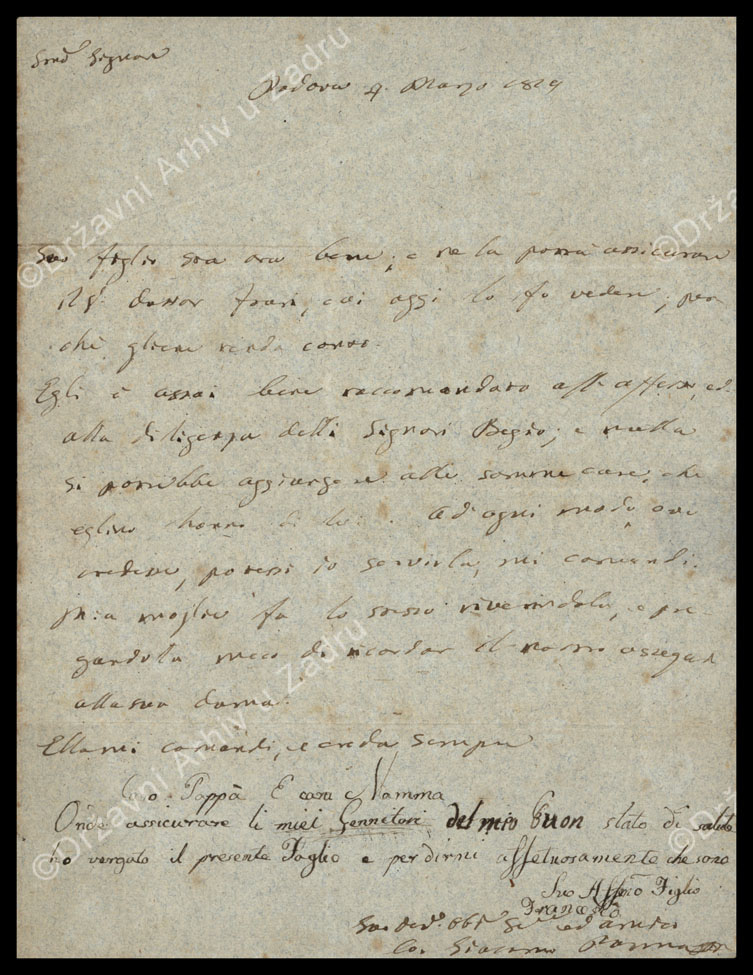 Signore
Padova 4. Marzo 1819
Suo figlio sta ora bene; e ne la potrà assicurare
il Sr. dottor , cui oggi lo fo vedere, per
chè gliene renda conto.
Egli è assai bene raccomandato all' affetto, ed
alla diligenza delli Signori ; e nulla
si potrebbe aggiungere alle somme cure, che
eglino hanno di lui. Ad ogni modo, ove
credesse, potessi io servirla, mi comandi.
Mia moglie fa lo stesso riverendola, e pre
gandola meco di ricordar il nostro ossequio
alla sua dama.
Ella mi comandi, e creda sempre
Caro Pappà E cara Mamma
Onde assicurare li miei Gennitori del mio buon stato di salute
ho vergato il presente Foglio e per dirmi affetuosamente che sono
Suo Figlio
Francesco
Suo ed amico
Co. Giacomo
©Državni Arhiv u Zadru
©Državni Arhiv u Zadru
©Državni Arhiv u Zadru